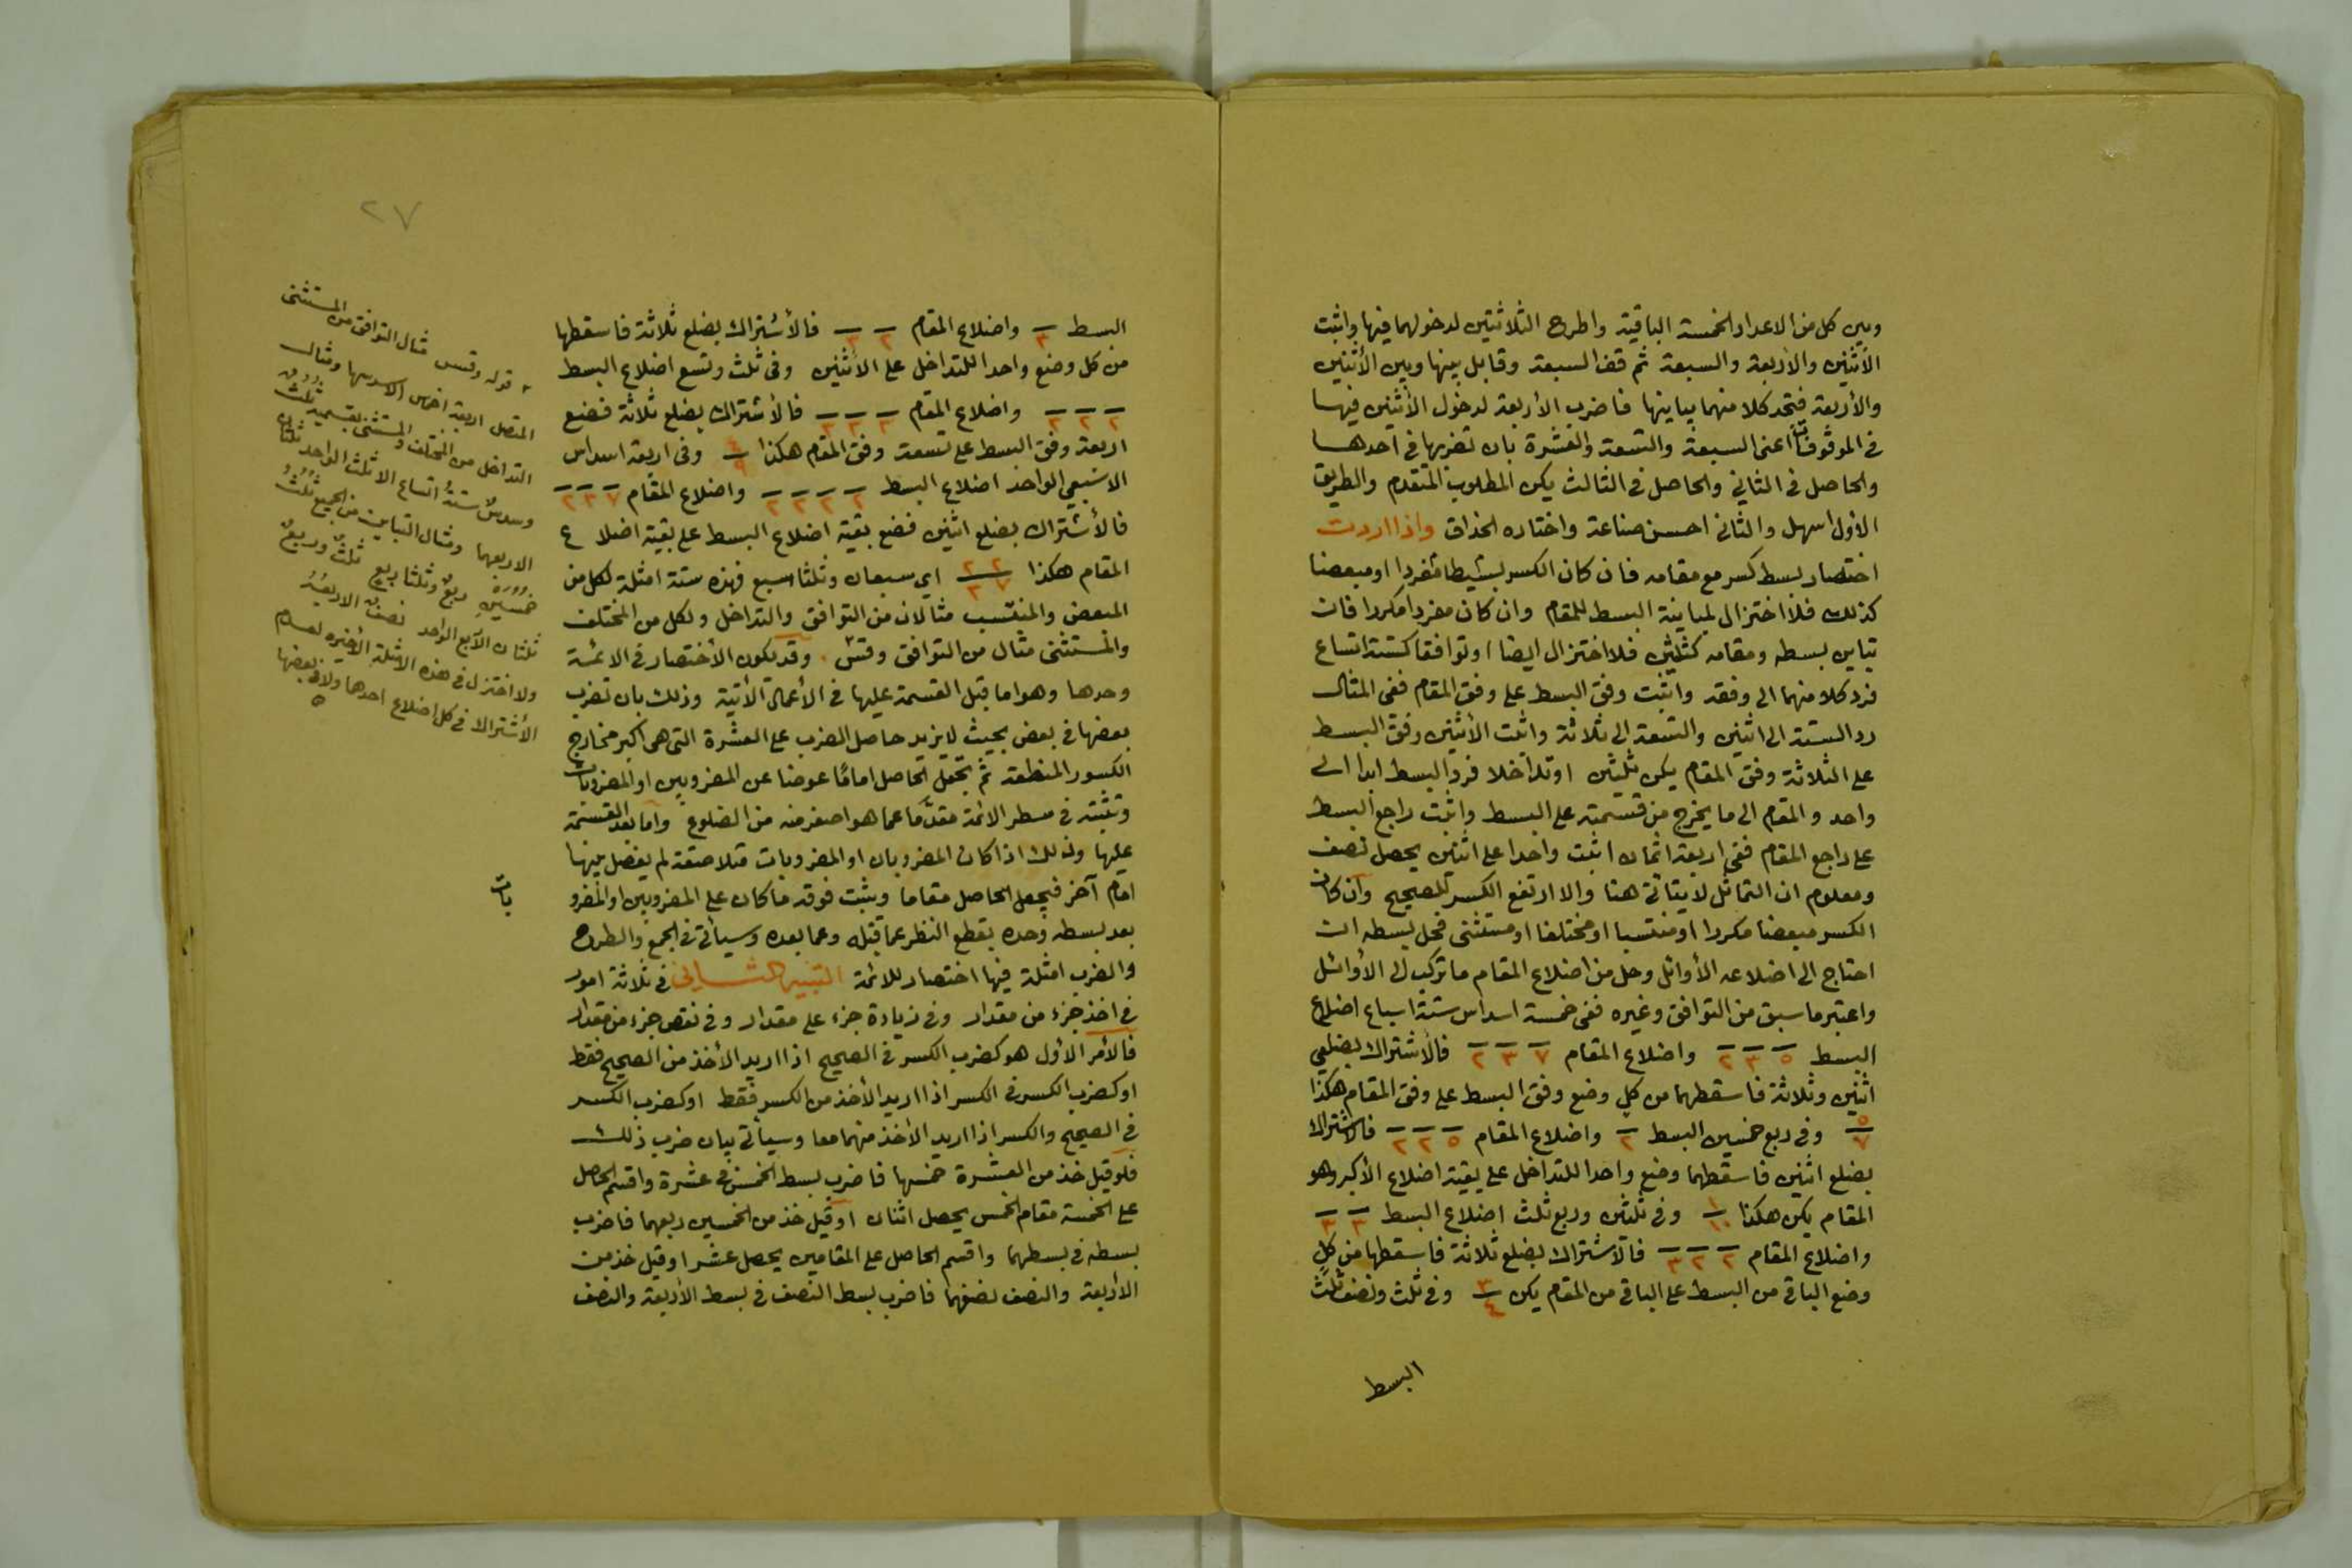 وبين كل من الاعداد الخمسة الباقية واطرح الثلاثتين لدخولهما فيها واثبت
الأثنين والأربعة والسبعة ثم قف السبعة وقابل بينها وبين الأثنين
والأربعة فتجد كلا منهما يباينها فاضرب الأربعة لدخول الأثنين فيها
في الموقوفات اعني السبعة والتسعة والعشرة بان تضربها في احدها
والحاصل في الثاني والحاصل في الثالث يكن المطلوب المتقدم والطريق
الأول اسهل والثاني احسن صناعة واختاره الحذاق واذا اردت
اختصار بسط كسر مع مقامه فان كان الكسر بسيطا مفردا او مبعضا
كذلك فلا اختزال لمباينة البسط للمقام وان كان مفردا مكررا فان
تباين بسطه ومقامه كثلثين فلا اختزال ايضا او توافقا كستة اتساع
فرد كلا منهما الى وفقه واثبت وفق البسط على وفق المقام ففى المثال
رد الستة الى اثنين والتسعة الى ثلاثة واثبت الأثنين وفق البسط
على الثلاثة وفق المقام يكن ثلثين او تداخلا فرد البسط ابدا الى
واحد والمقام الى ما يخرج من قسمته على البسط واثبت راجع البسط
على راجع المقام ففى اربعة اثمان اثبت واحدا على اثنين يحصل نصف
ومعلوم ان التماثل لا يتاتى هنا والا ارتفع الكسر للصحيح وان كان
الكسر مبعضا مكررا او منتسبا او مختلفا او مستثنى فحل بسطه ان
احتاج الى اضلاعه الأوائل وحل من اضلاع المقام ما تركب الى الأوائل
واعتبر ما سبق من التوافق وغيره ففى خمسة اسداس ستة اسباع اضلاع
البسط ٥ ٣ ٢ واضلاع المقام ٧ ٣ ٢ فالأشتراك بضلعي
اثنين وثلاثة فاسقطهما من كل وضع وفق البسط على وفق المقام هكذا
٥/٧ وفى ربع خمسين البسط ٢ واضلاع المقام ٥ ٢ ٢ فالاشتراك
بضلع اثنين فاسقطهما وضع واحدا للتداخل على بقية اضلاع الأكبر وهو
المقام يكن هكذا ١/١٠ وفى ثلثين وربع ثلث اضلاع البسط ٣ ٣
واضلاع المقام ٢ ٢ ٣ فالاشتراك بضلع ثلاثة فاسقطها من كل
وضع الباقي من البسط على الباقي من المقام يكن ٣/٤ وفى ثلث ونصف ثلث
البسط
٢٧
البسط ٣ واضلاع المقام ٢ ٣ فالأشتراك بضلع ثلاثة فاسقطها
من كل وضع واحدا للتداخل على الاثنين وفى ثلث وتسع اضلاع البسط
٢ ٢ ٣ واضلاع المقام ٣ ٣ ٣ فالأشتراك بضلع ثلاثة فضع
اربعة وفق البسط على تسعة وفق المقام هكذا ٤/٩ وفى اربعة اسداس
الا سبعي الواحد اضلاع البسط ٢ ٢ ٢ ٢ واضلاع المقام ٧ ٣ ٢
فالأشتراك بضلع اثنين فضع بقية اضلاع البسط على بقية اضلاع
المقام هكذا ٢ ٢/٧ ٣ اي سبعان وثلثا سبع فهذه ستة امثلة لكل من
المبعض والمنتسب مثالان من التوافق والتداخل ولكل من المختلف
والمستثنى مثال من التوافق وقس وقد يكون الأختصار فى الائمة
وحدها وهو اما قبل القسمة عليها فى الأعمال الآتية وذلك بان تضرب
بعضها فى بعض بحيث لا يزيد حاصل الضرب على العشرة التى هى اكبر مخارج
الكسور المنطقة ثم تجعل الحاصل اماما عوضا عن المضروبين او المضروبات
وتثبته فى سطر الائمة مقدما عما هو اصغر منه من الضلوع واما بعد القسمة
عليها وذلك اذا كان المضروبان او المضروبات متلاصقة لم يفصل بينها
امام آخر فيجعل الحاصل مقاما ويثبت فوقه ما كان على المضروبين او المضرو
بات
بعد بسطه وحده بقطع النظر عما قبله وعما بعده وسيأتى فى الجمع والطرح
والضرب امثلة فيها اختصار للائمة التنبيه الثانى فى ثلاثة امور
فى اخذ جزء من مقدار وفى زيادة جزء على مقدار وفى نقص جزء من مقدار
فالأمر الأول هو كضرب الكسر فى الصحيح اذا اريد الأخذ من الصحيح فقط
او كضرب الكسر فى الكسر اذا اريد الأخذ من الكسر فقط او كضرب الكسر
فى الصحيح والكسر اذا اريد الأخذ منهما معا وسيأتى بيان ضرب ذلك
فلو قيل خذ من العشرة خمسها فاضرب بسط الخمس فى عشرة واقسم الحاصل
على الخمسة مقام الخمس يحصل اثنان او قيل خذ من الخمسين ربعهما فاضرب
بسطه فى بسطهما واقسم الحاصل على المقامين يحصل عشرا او قيل خذ من
الأربعة والنصف نصفهما فاضرب بسط النصف فى بسط الأربعة والنصف
قوله وقس مثال التوافق من المستثنى
المتصل اربعة اخماس الا سدسها ومثال
التداخل من المختلف والمستثنى بقسميه ثلث
وسدس ستة اتساع الا ثلث الواحد ثلثان
الا ربعهما ومثال التباين من الجميع ثلث
خمسين ربع وثلثا ربع ثلث وربع
ثلثان الا ربع الواحد نصف الا ربعه
ولا اختزال فى هذه الامثلة الأخيره لعدم
الأشتراك فى كل اضلاع احدها ولا فى بعضها